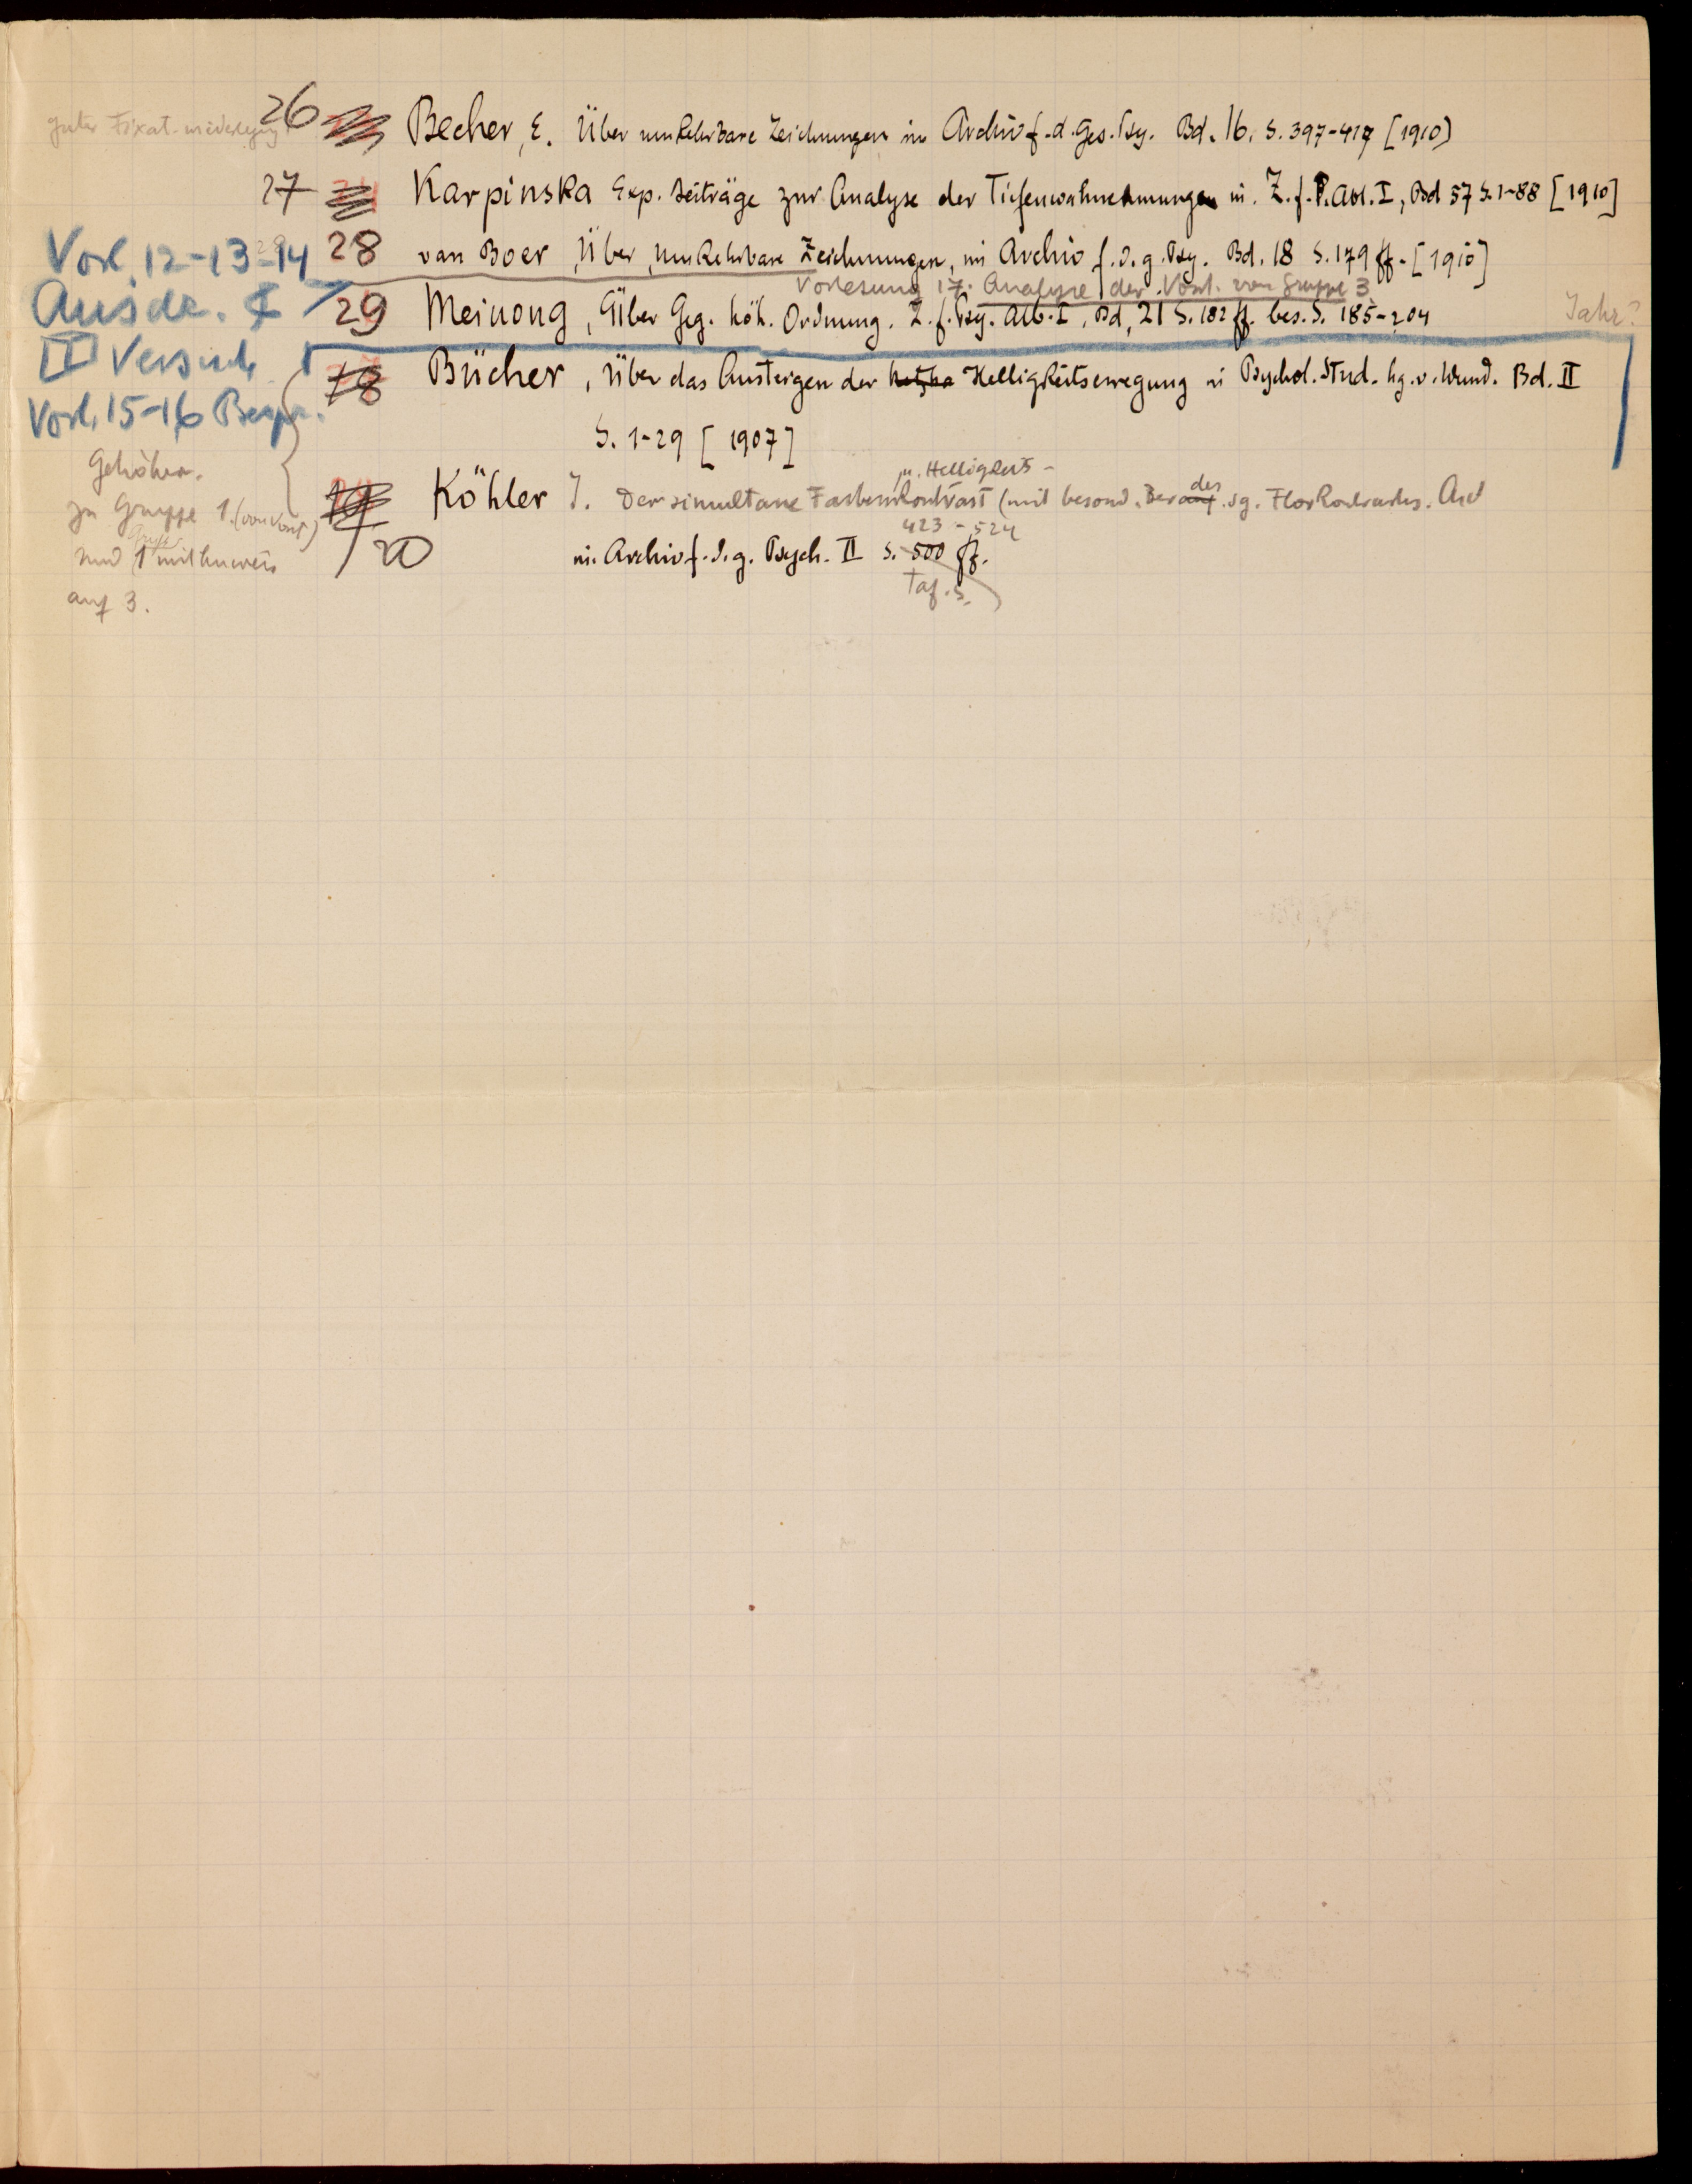 26 Becher, E. Über umkehrbare Zeichnungen in Archiv f. d. Ges. Psy. Bd. 16. S. 397-417 [1910]
27 Karpinska Exp. Beiträge zur Analyse der Tiefenwahrnehmungen in. Z. f. P. Abt. I, Bd 57 S. 1-88 [1910]
Vorl. 12-13-14
28 van Boer, Über umkehrbare Zeichnungen, in Archiv f. d. g. Psy. Bd. 18 S. 179 ff. [1910]
Vorlesung 17. Analyse der Vorst. von Gruppe 3
29 Meinong, Über Geg. höh. Ordnung. Z. f. Psy. Abt. I, Bd, 21 S. 182 ff. bes. S. 185-204 Jahr?
II Versuch
18 Bücher, Über das Ansteigen der Helligkeitserregung in Psychol. Stud. hg. v. Wund. Bd. II
Vorl. 15-16
S. 1-29 [1907]
Gehören
zu Gruppe 1.
u. Helligkeits-
Köhler J. Der simultane Farbenkontrast (mit besond. des sg. Florkontrastes.
423-524
20 in. Archiv f. d. g. Psych. II S. 500 ff.
und 1
auf 3.
Taf. S.